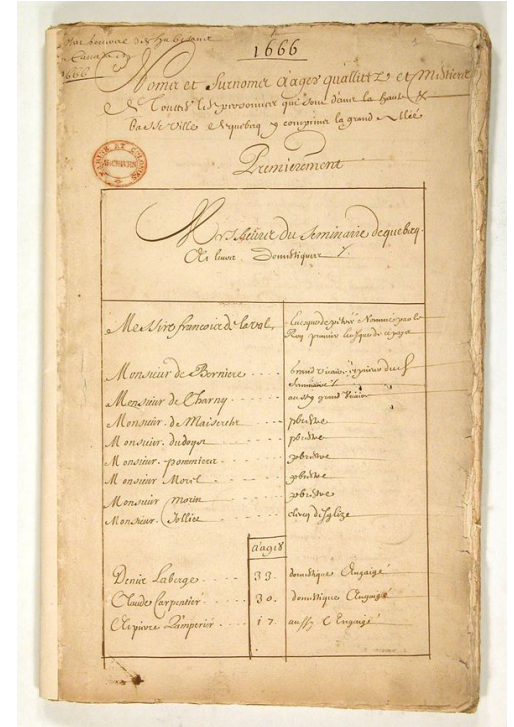 1666
1666
Noms et Surnoms aages quallittez et Mestiers
de Touttes les personnes qui sont dans la haute &
Basse Ville de quebecq y compris la grand Allée
Premierement
MARINE ET COLONIES
ARCHIVES
Messieurs du Seminaire de quebecq
et leurs domestiques
Messire francois de laval, Evesque de petrée Nommé par le
Roy premier Evesque de ce pays
Monsieur de Berniere grand Vicaire et superieur dud
Seminaire
Monsieur de Charny aussy grand Vicaire
Monsieur de Maiserets pbestre
Monsieur dudoyt pbestre
Monsieur pommiers pbestre
Monsieur Morel pbestre
Monsieur morin pbestre
Monsieur Jolliet clercq d'Esglize
aages
Denis Laberge 33. domestique Engaigé
Claude Carpentier 30. domestique Engaigé
17. aussy Engaigé